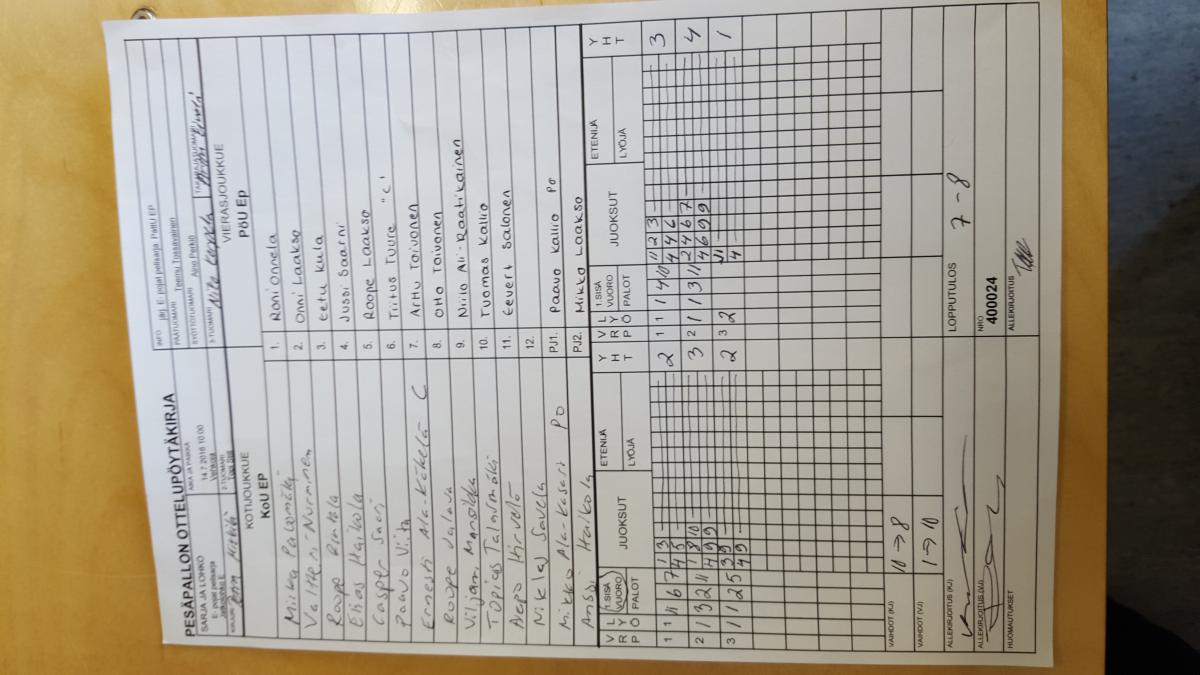 PESÄPALLON OTTELUPÖYTÄKIRJA
SARJA JA LOHKO
E-pojat pelisarja
AIKA JA PAIKKA
14.7.2016 10:00
INFO jäi, E-pojat pelisarja, PattU EP
PÄÄTUOMARI Teemu Tossavainen
SYÖTTÖTUOMARI Aino Perkiö
2-TUOMARI
3-TUOMARI
KIRJURI
KOTIJOUKKUE
KoU EP
VIERASJOUKKUE
PöU Ep
Miika Palomäki 1. Roni Onnela
Valtteri Nurminen 2. Onni Laakso
Roope Rintala 3. Eetu Kula
Elias Haikola 4. Jussi Saarni
Casper Saari 5. Roope Laakso
Paavo Viita 6. Tiitus Tuure "C"
Ernesti Ala-Käkelä C 7. Arttu Toivonen
Roope Jalava 8. Otto Toivonen
Viljami Mansikka 9. Niilo Ali-Raatikainen
Topias Talasmäki 10. Tuomas Kallio
Aapo Hirvelä 11. Eevert Salonen
Niklas Savela 12.
Mikko Ala-Kasari PO PJ1. Paavo Kallio Po
Anssi Haikola PJ2. Mikko Laakso
VRP LYÖ 1.SISÄVUORO PALOT JUOKSUT ETENIJÄ LYÖJÄ YHT
VRP LYÖ 1.SISÄVUORO PALOT JUOKSUT ETENIJÄ LYÖJÄ YHT
1 1 11 6 7 1 3 2
4 5
1 1 1 4 10 11 2 3 3
4 4 6
2 1 3 2 11 1 8 10 3
4 9 9
2 1 1 3 11 2 4 6 7 4
4 6 9 9
3 1 1 2 5 3 9 2
4 9
3 2 11 1
4
VAIHDOT (KJ) 10 → 8
VAIHDOT (VJ) 1 → 10
ALLEKIRJOITUS (KJ)
ALLEKIRJOITUS (VJ)
HUOMAUTUKSET
LOPPUTULOS 7 - 8
NRO 400024
ALLEKIRJOITUS